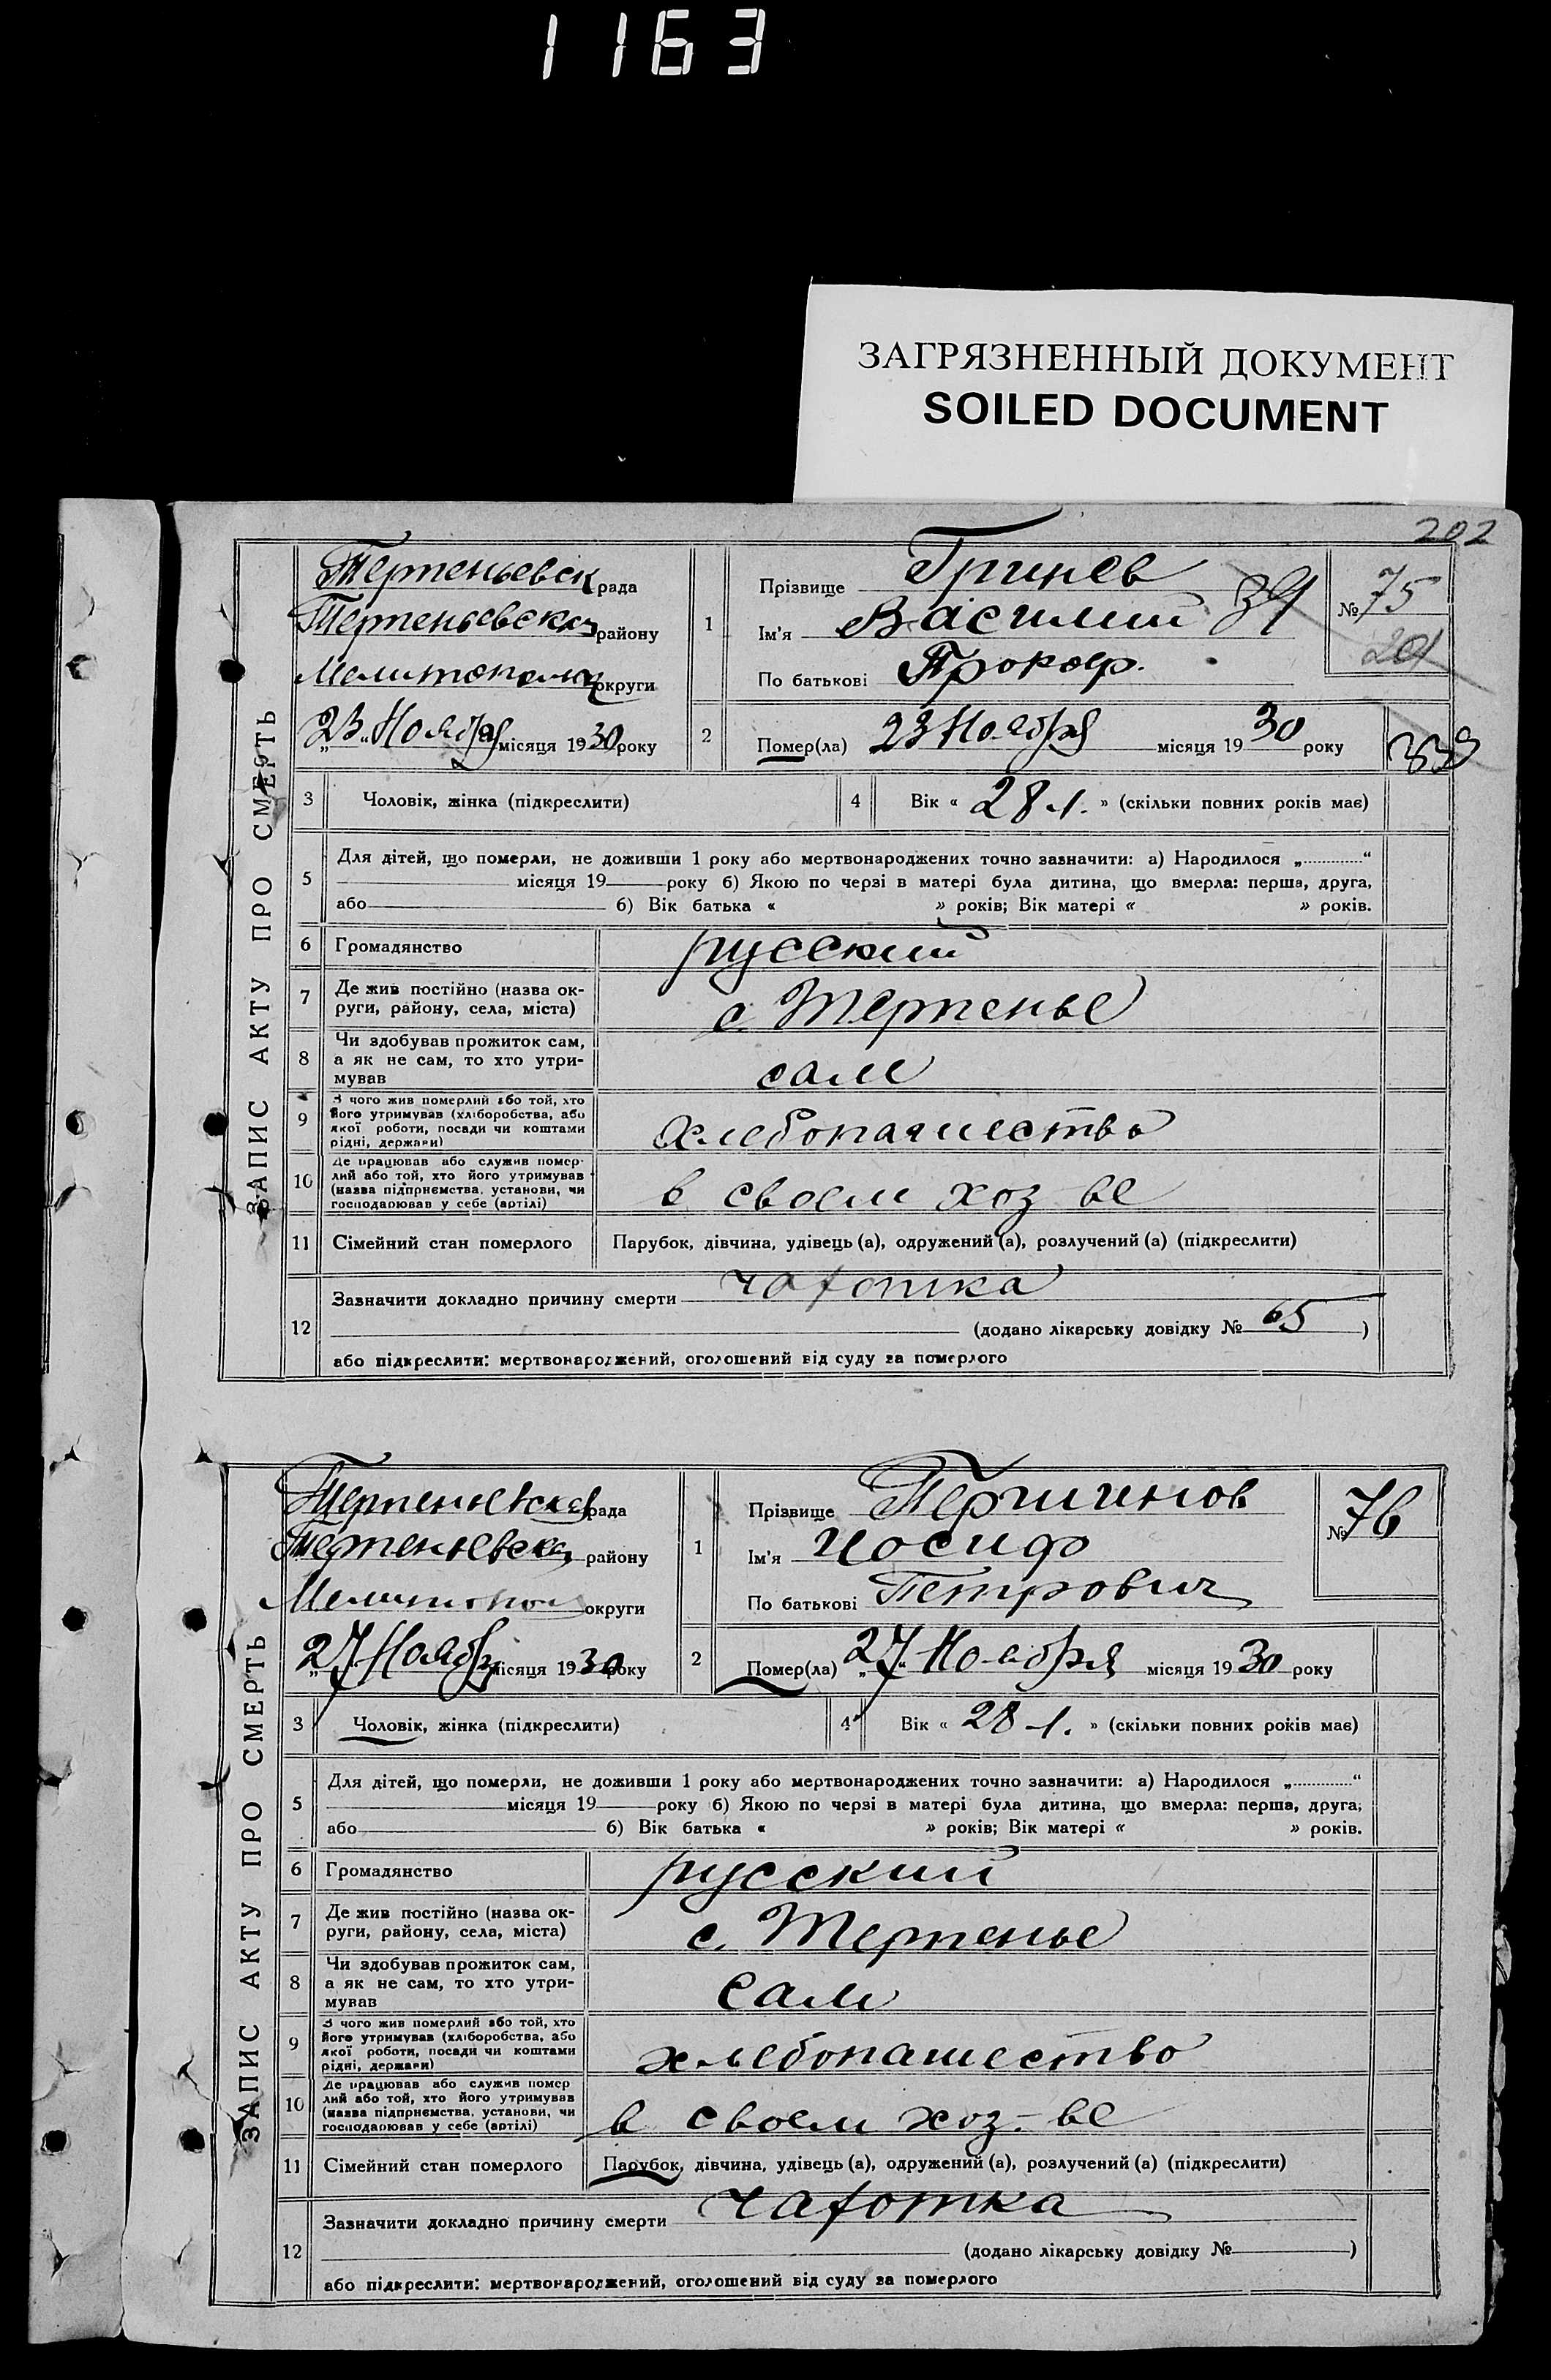 1163
ЗАГРЯЗНЕННЫЙ ДОКУМЕНТ
SOILED DOCUMENT
202
ЗАПИС АКТУ ПРО СМЕРТЬ
Терпеньевск рада
Терпеньевск району
Мелитополь округи
„23“ Ноября місяця 1930 року
1
Прізвище Гринев
Ім'я Василий 39
По батькові Прокоф.
№ 75
201
2
Помер(ла) 23 Ноября місяця 1930 року
3 Чоловік, жінка (підкреслити)
4 Вік « 28 л. » (скільки повних років має)
5 Для дітей, що померли, не доживши 1 року або мертвонароджених точно зазначити: а) Народилося „ “
місяця 19 року б) Якою по черзі в матері була дитина, що вмерла: перша, друга,
або б) Вік батька « » років; Вік матері « » років.
6 Громадянство русский
7 Де жив постійно (назва ок-
руги, району, села, міста)
с. Терпенье
8 Чи здобував прожиток сам,
а як не сам, то хто утри-
мував
сам
9 З чого жив померлий або той, хто
його утримував (хліборобства, або
якої роботи, посади чи коштами
рідні, держави)
хлебопашество
10 Де працював або служив помер-
лий або той, хто його утримував
(назва підприємства, установи, чи
господарював у себе (артілі)
в своем хоз-ве
11 Сімейний стан померлого Парубок, дівчина, удівець (а), одружений (а), розлучений (а) (підкреслити)
12 Зазначити докладно причину смерти чахотка
(додано лікарську довідку № 65 )
або підкреслити: мертвонароджений, оголошений від суду за померлого
ЗАПИС АКТУ ПРО СМЕРТЬ
Терпеньевска рада
Терпеньевска району
Мелитопол округи
„27“ Ноября місяця 1930 року
1
Прізвище Першинов
Ім'я Иосиф
По батькові Петрович
№ 76
2
Помер(ла) „27“ Ноября місяця 1930 року
3 Чоловік, жінка (підкреслити)
4 Вік « 28 л. » (скільки повних років має)
5 Для дітей, що померли, не доживши 1 року або мертвонароджених точно зазначити: а) Народилося „ “
місяця 19 року б) Якою по черзі в матері була дитина, що вмерла: перша, друга,
або б) Вік батька « » років; Вік матері « » років.
6 Громадянство русский
7 Де жив постійно (назва ок-
руги, району, села, міста)
с. Терпенье
8 Чи здобував прожиток сам,
а як не сам, то хто утри-
мував
сам
9 З чого жив померлий або той, хто
його утримував (хліборобства, або
якої роботи, посади чи коштами
рідні, держави)
хлебопашество
10 Де працював або служив помер
лий або той, хто його утримував
(назва підприємства, установи, чи
господарював у себе (артілі)
в своем хоз-ве
11 Сімейний стан померлого Парубок, дівчина, удівець (а), одружений (а), розлучений (а) (підкреслити)
12 Зазначити докладно причину смерти чахотка
(додано лікарську довідку № )
або підкреслити: мертвонароджений, оголошений від суду за померлого